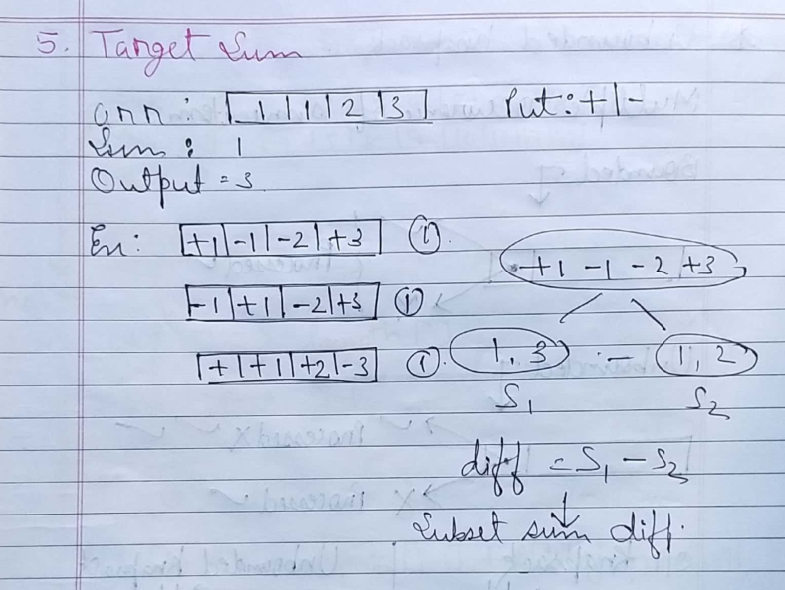 5. Target Sum
arr: 1 | 1 | 2 | 3 Put: + | -
Sum : 1
Output = 3
Ex: +1 | -1 | -2 | +3 ①.
+1 -1 -2 +3
-1 | +1 | -2 | +3 ①
+1 | +1 | +2 | -3 ①.
1, 3 - 1, 2
S1 S2
diff = S1 - S2
Subset sum diff.